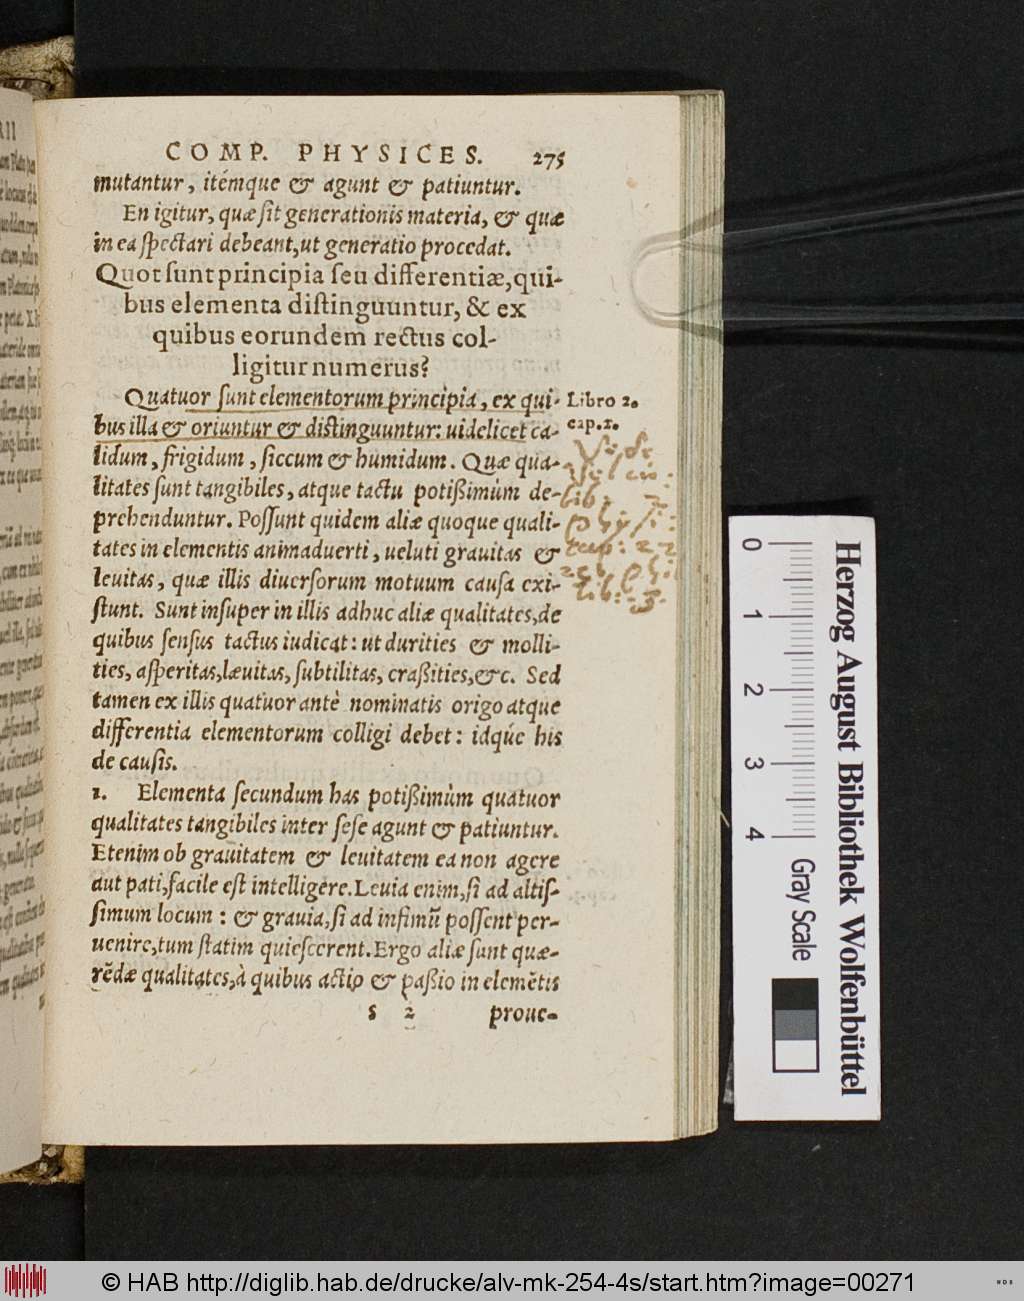 COMP. PHYSICES. 275
mutantur, itémque & agunt & patiuntur.
En igitur, quæ sit generationis materia, & quæ
in ea spectari debeant, ut generatio procedat.
Quot sunt principia seu differentiæ, qui-
bus elementa distinguuntur, & ex
quibus eorundem rectus col-
ligitur numerus?
Quatuor sunt elementorum principia, ex qui-
bus illa & oriuntur & distinguuntur: uidelicet ca-
lidum, frigidum, siccum & humidum. Quæ qua-
litates sunt tangibiles, atque tactu potißimùm de-
prehenduntur. Possunt quidem aliæ quoque quali-
tates in elementis animaduerti, ueluti grauitas &
leuitas, quæ illis diuersorum motuum causa exi-
stunt. Sunt insuper in illis adhuc aliæ qualitates, de
quibus sensus tactus iudicat: ut durities & molli-
ties, asperitas, læuitas, subtilitas, craßities, &c. Sed
tamen ex illis quatuor antè nominatis origo atque
differentia elementorum colligi debet: idq́ue his
de causis.
1. Elementa secundum has potißimùm quatuor
qualitates tangibiles inter sese agunt & patiuntur.
Etenim ob grauitatem & leuitatem ea non agere
aut pati, facile est intelligere. Leuia enim, si ad altis-
simum locum: & grauia, si ad infimũ possent per-
uenire, tum statim quiescerent. Ergo aliæ sunt quæ-
rẽdæ qualitates, à quibus actio & paßio in elemẽtis
s 2 proue-
Libro 2.
cap. 2.
lib:
phÿsi:
cap: 22
lib: 3.
0 1 2 3 4
Gray Scale
Herzog August Bibliothek Wolfenbüttel
© HAB http://diglib.hab.de/drucke/alv-mk-254-4s/start.htm?image=00271